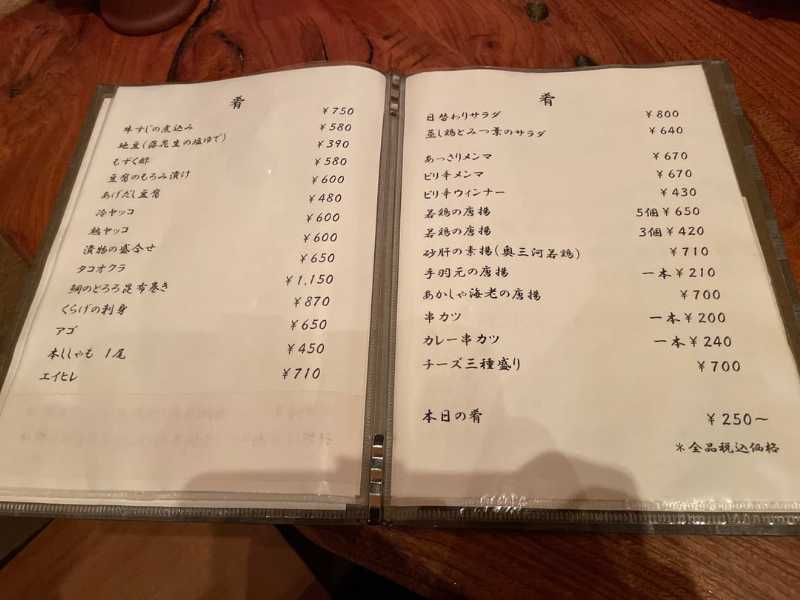 肴
牛すじの煮込み ¥750
地豆(落花生の塩ゆで) ¥580
もずく酢 ¥390
豆腐のもろみ漬け ¥580
あげだし豆腐 ¥600
冷ヤッコ ¥480
熱ヤッコ ¥600
漬物の盛合せ ¥600
タコオクラ ¥650
鯛のとろろ昆布巻き ¥1,150
くらげの刺身 ¥870
アゴ ¥650
本ししゃも 1尾 ¥450
エイヒレ ¥710
肴
日替わりサラダ ¥800
蒸し鶏とみつ葉のサラダ ¥640
あっさりメンマ ¥670
ピリ辛メンマ ¥670
ピリ辛ウィンナー ¥430
若鶏の唐揚 5個 ¥650
若鶏の唐揚 3個 ¥420
砂肝の素揚(奥三河若鶏) ¥710
手羽元の唐揚 一本 ¥210
あかしゃ海老の唐揚 ¥700
串カツ 一本 ¥200
カレー串カツ 一本 ¥240
チーズ三種盛り ¥700
本日の肴 ¥250〜
*全品税込価格